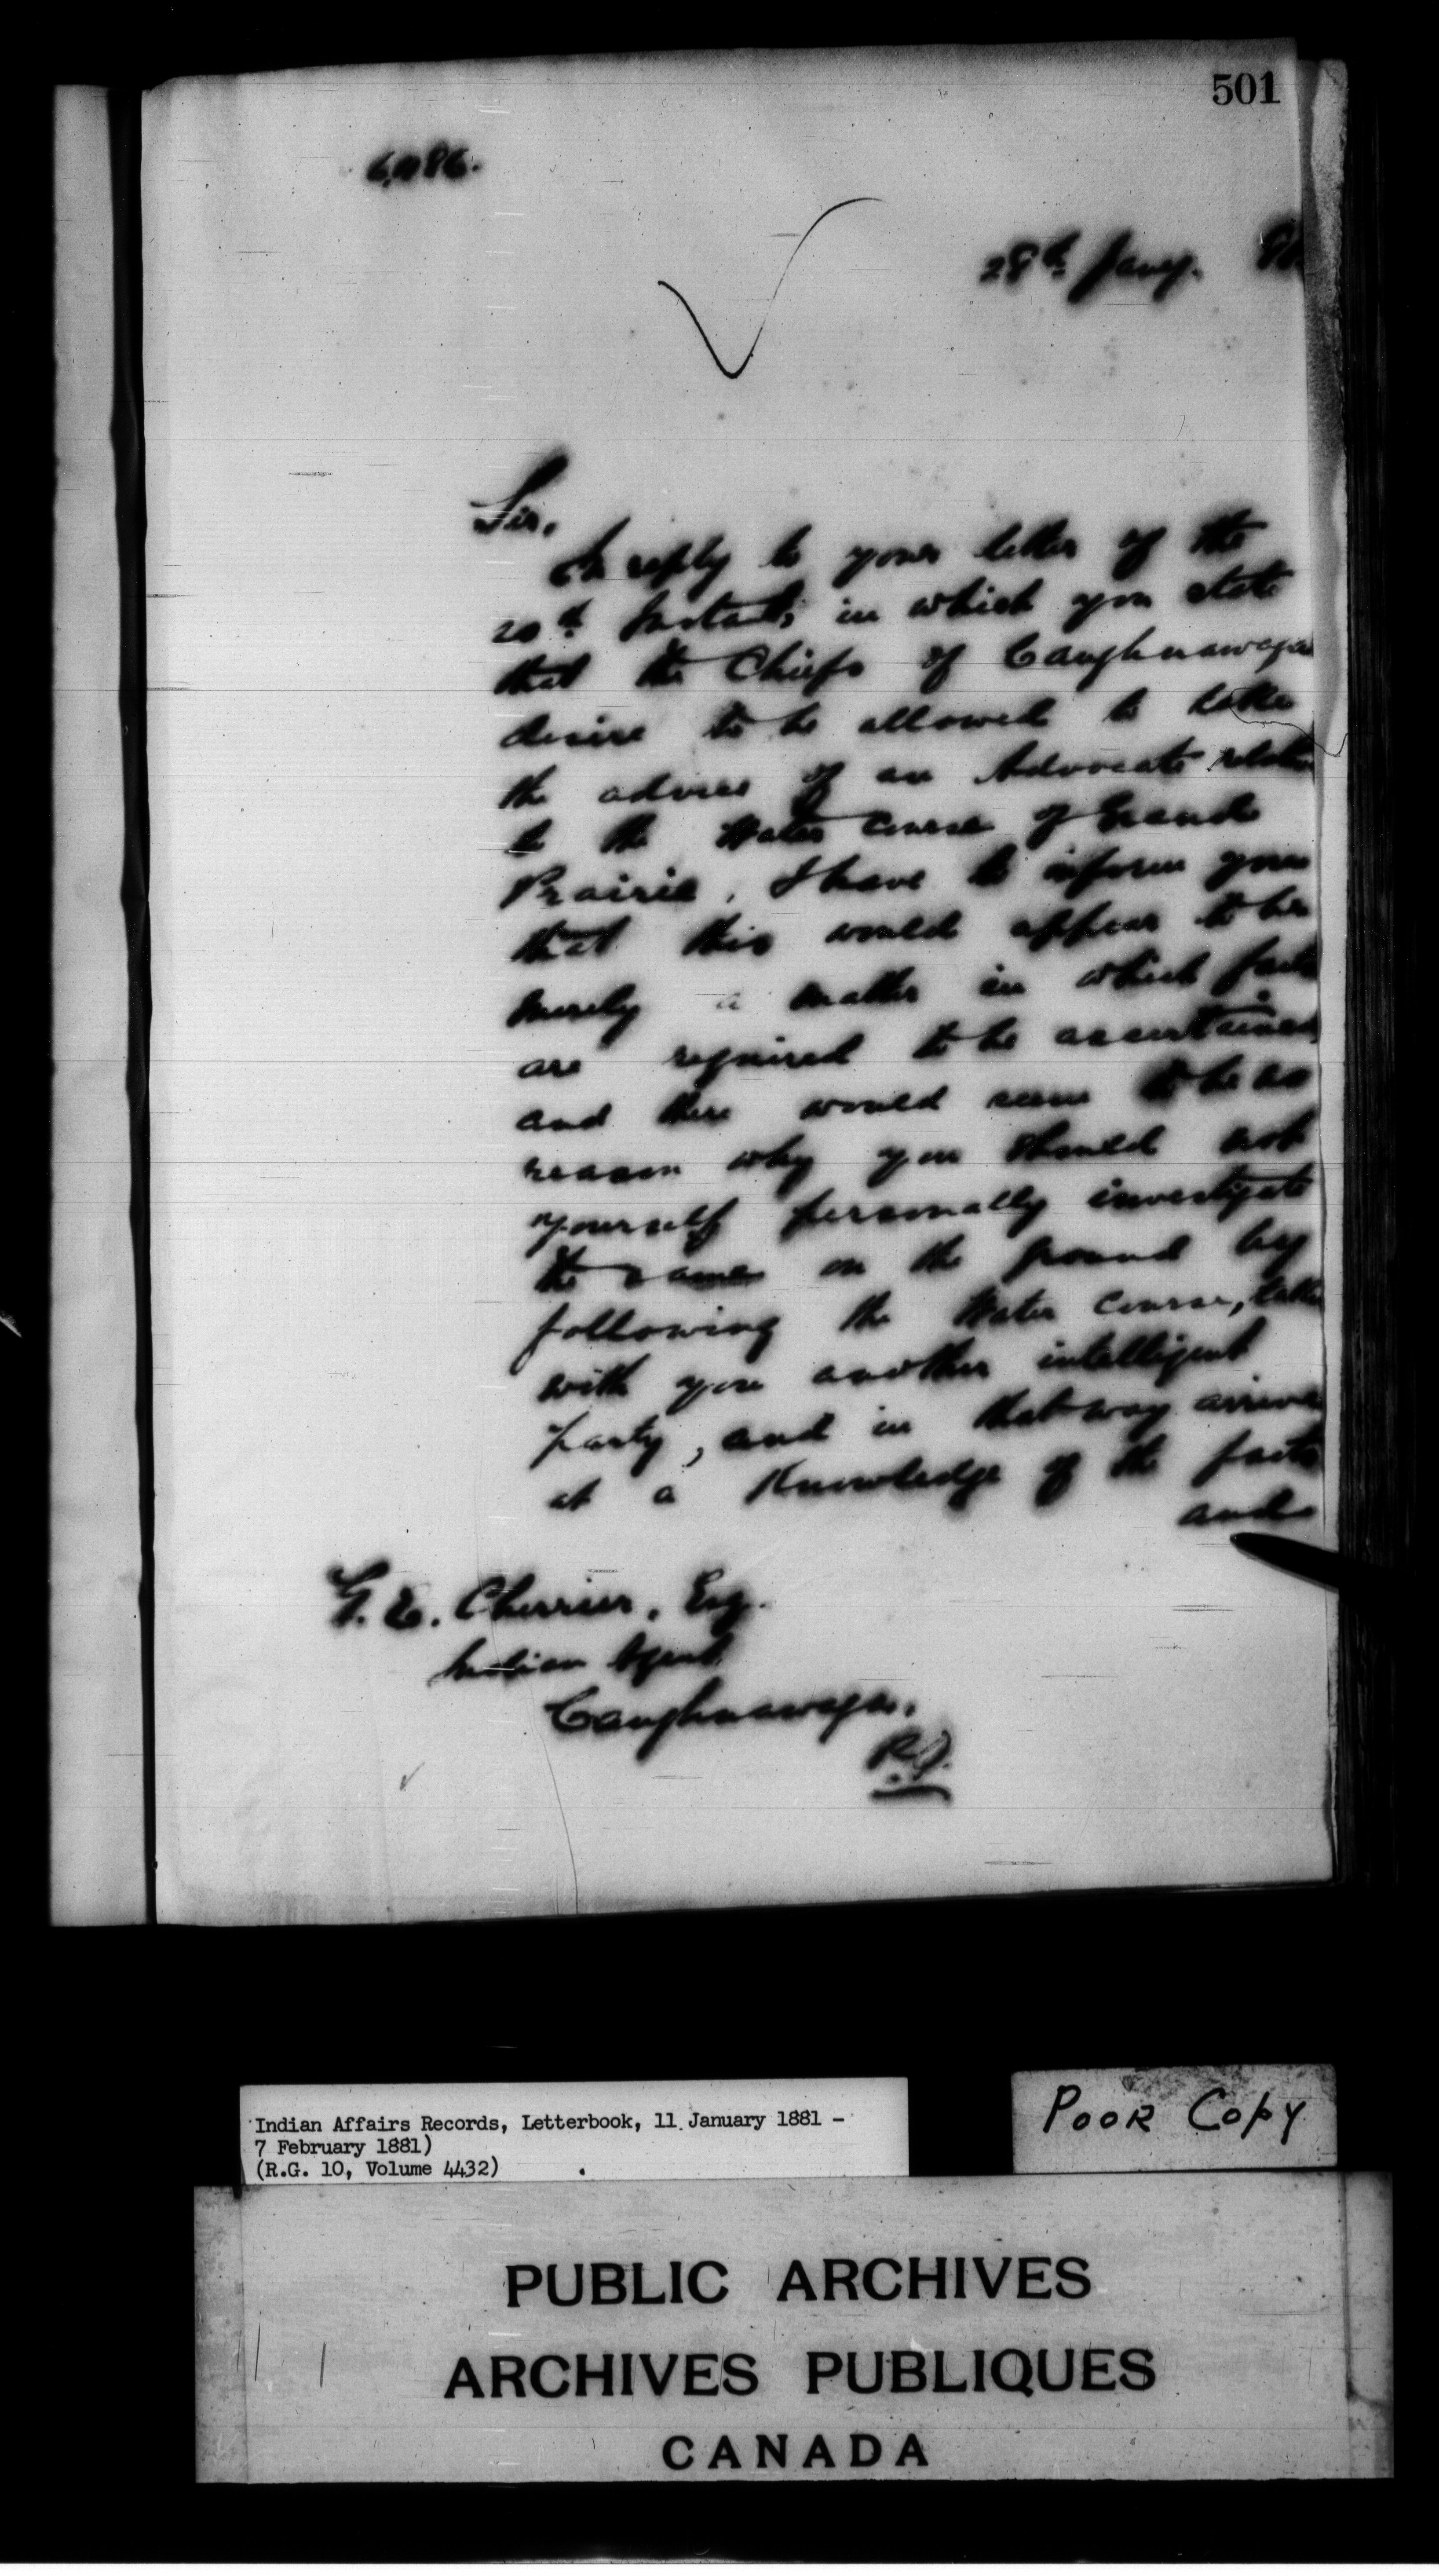 501
28th Jany. 81
Sir,
In reply to your letter of the
20th Instant, in which you state
that the Chiefs of Caughnawaga
desire to be allowed to take
the advice of an Advocate
to the Water Course of Grand
Prairie, I have to inform you
that this would appear to be
merely a matter in which facts
are required to be ascertained
and there would seem to be no
reason why you should not
yourself personally investigate
the same on the ground by
following the Water Course,
with you another intelligent
party, and in that way arrive
at a Knowledge of the facts
and
G. E. Cherrier, Esq.
Indian Agent
Caughnawaga,
P.Q.
Indian Affairs Records, Letterbook, 11 January 1881 -
7 February 1881)
(R.G. 10, Volume 4432)
POOR COPY
PUBLIC ARCHIVES
ARCHIVES PUBLIQUES
CANADA